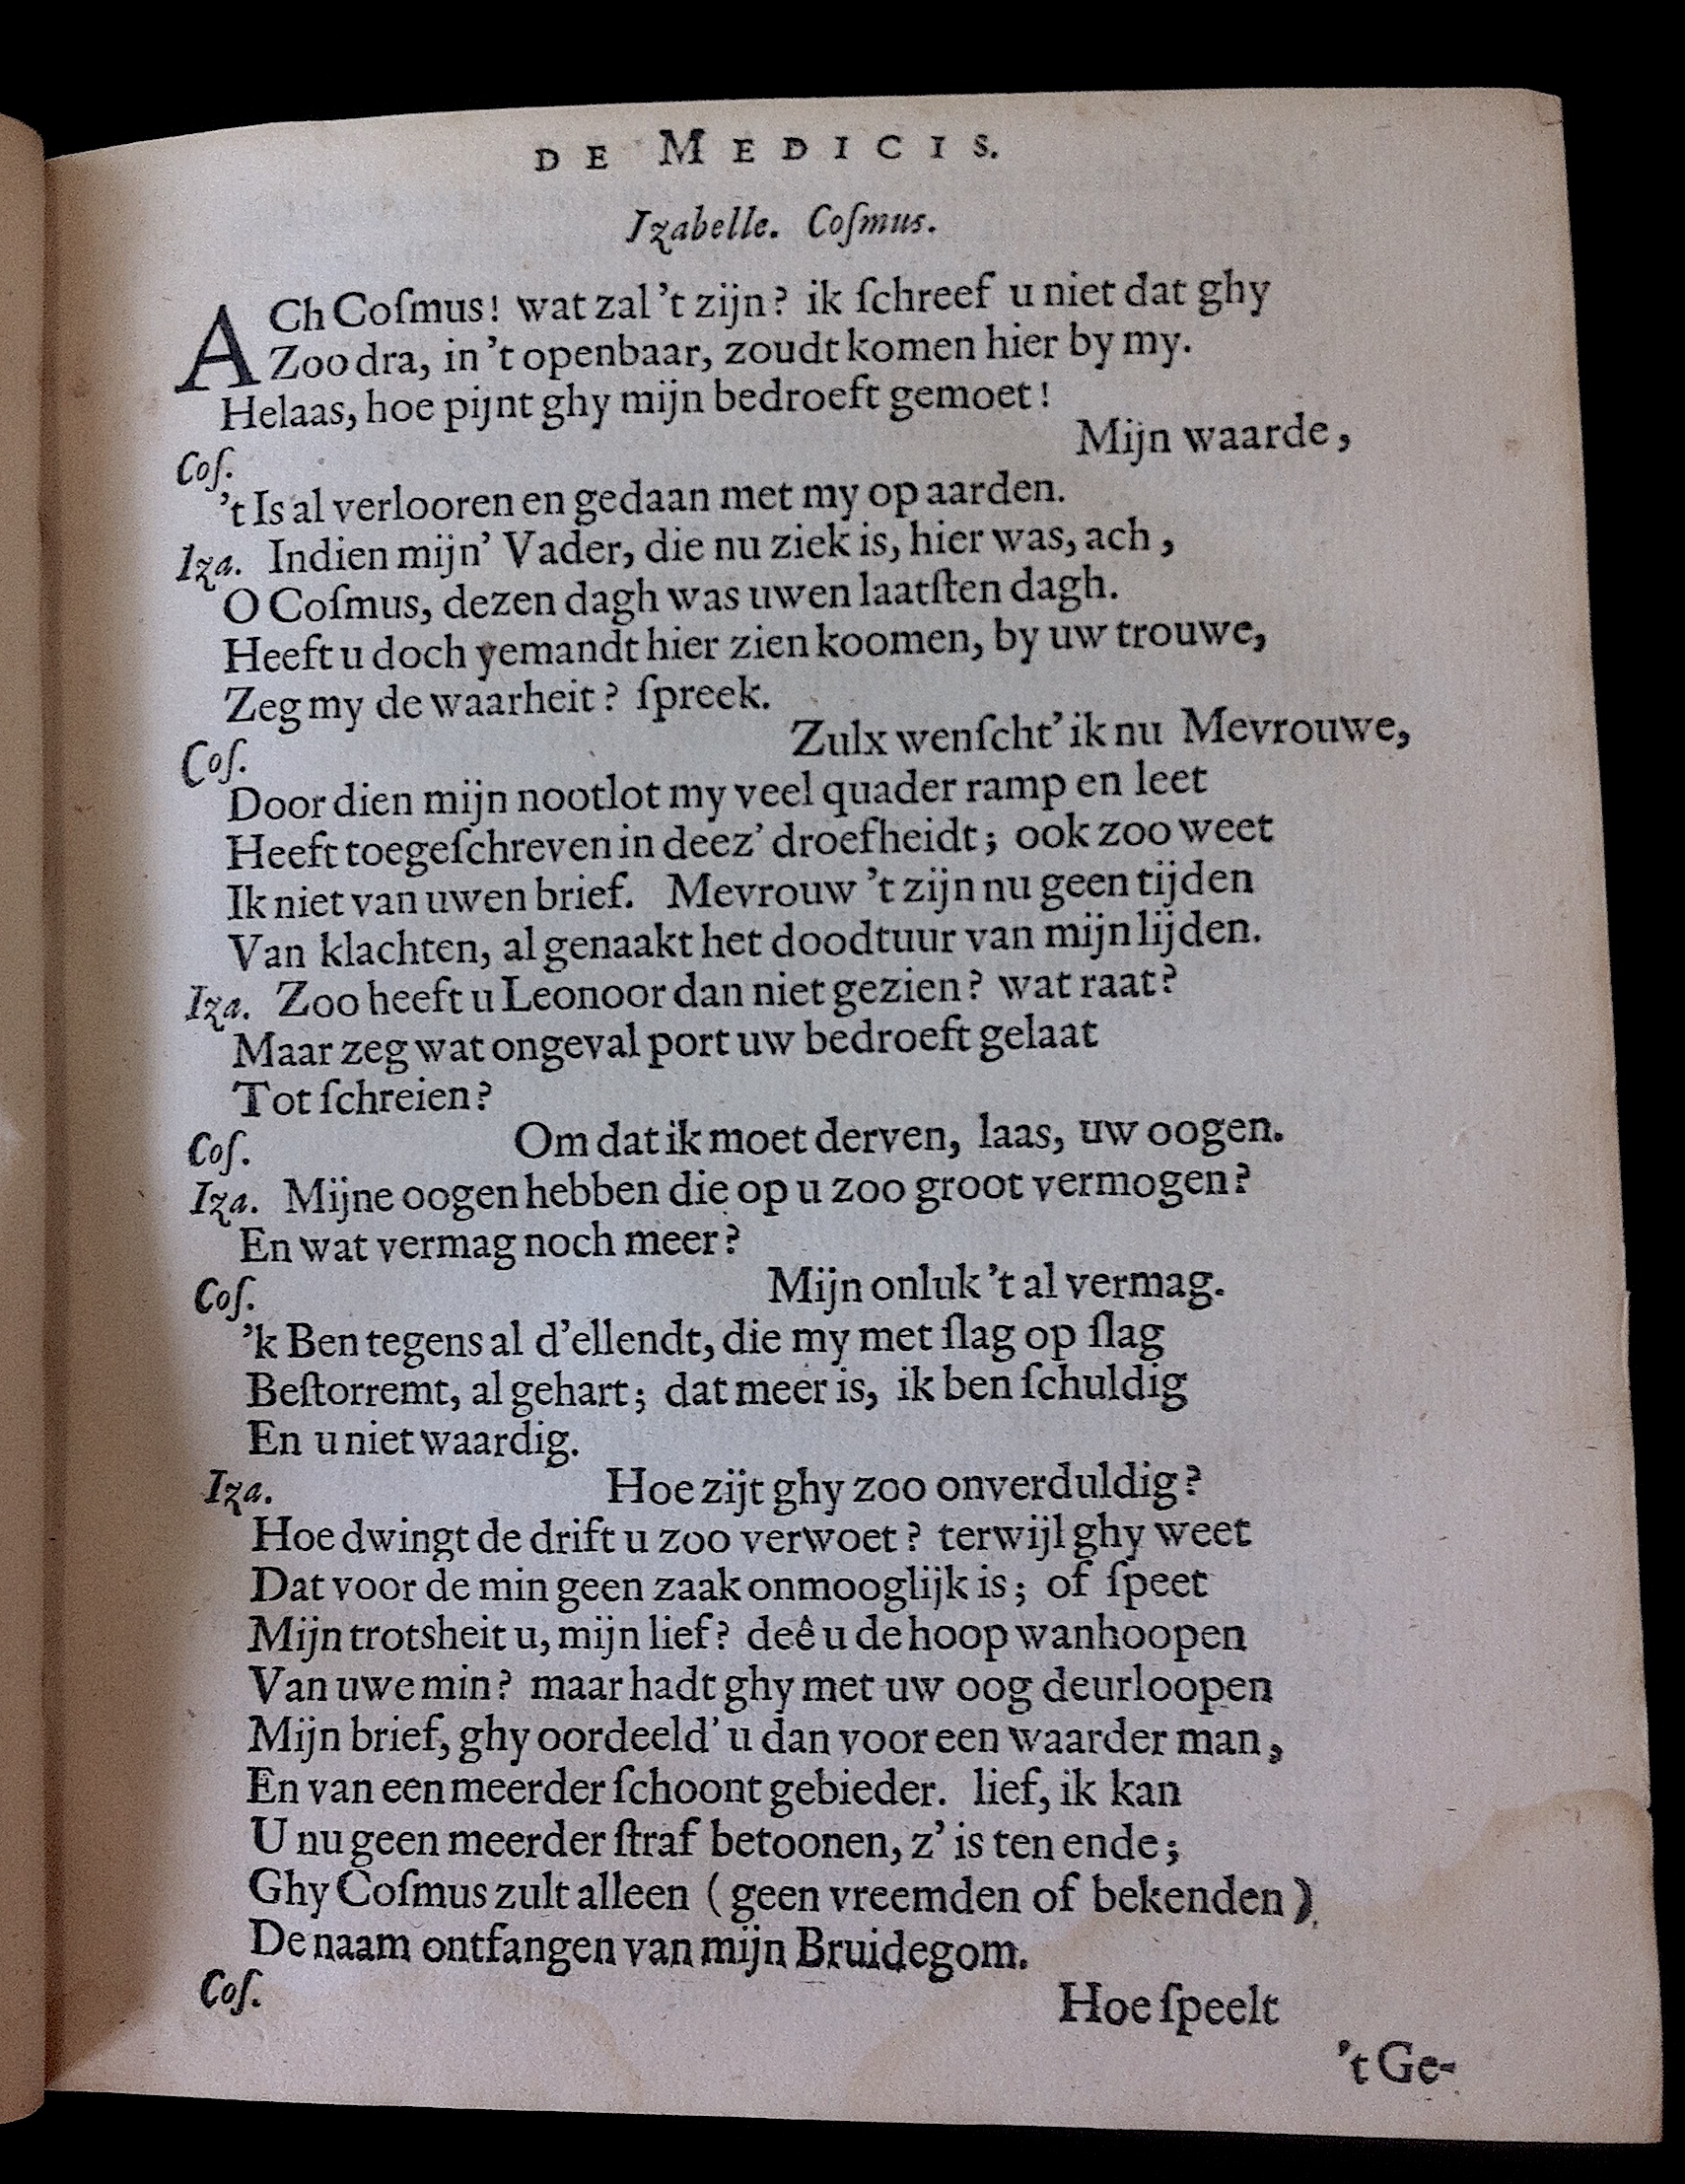 DE MEDICIS.
Izabelle. Coſmus.
ACh Coſmus! wat zal 't zijn? ik ſchreef u niet dat ghy
Zoo dra, in 't openbaar, zoudt komen hier by my.
Helaas, hoe pijnt ghy mijn bedroeft gemoet!
Coſ. Mijn waarde,
't Is al verlooren en gedaan met my op aarden.
Iza. Indien mijn' Vader, die nu ziek is, hier was, ach,
O Coſmus, dezen dagh was uwen laatſten dagh.
Heeft u doch yemandt hier zien koomen, by uw trouwe,
Zeg my de waarheit? ſpreek.
Coſ. Zulx wenſcht' ik nu Mevrouwe,
Door dien mijn nootlot my veel quader ramp en leet
Heeft toegeſchreven in deez' droefheidt; ook zoo weet
Ik niet van uwen brief. Mevrouw 't zijn nu geen tijden
Van klachten, al genaakt het doodtuur van mijn lijden.
Iza. Zoo heeft u Leonoor dan niet gezien? wat raat?
Maar zeg wat ongeval port uw bedroeft gelaat
Tot ſchreien?
Coſ. Om dat ik moet derven, laas, uw oogen.
Iza. Mijne oogen hebben die op u zoo groot vermogen?
En wat vermag noch meer?
Coſ. Mijn onluk 't al vermag.
'k Ben tegens al d'ellendt, die my met ſlag op ſlag
Beſtorremt, al gehart; dat meer is, ik ben ſchuldig
En u niet waardig.
Iza. Hoe zijt ghy zoo onverduldig?
Hoe dwingt de drift u zoo verwoet? terwijl ghy weet
Dat voor de min geen zaak onmooglijk is; of ſpeet
Mijn trotsheit u, mijn lief? deê u de hoop wanhoopen
Van uwe min? maar hadt ghy met uw oog deurloopen
Mijn brief, ghy oordeeld' u dan voor een waarder man,
En van een meerder ſchoont gebieder. lief, ik kan
U nu geen meerder ſtraf betoonen, z' is ten ende;
Ghy Coſmus zult alleen (geen vreemden of bekenden)
De naam ontfangen van mijn Bruidegom.
Coſ. Hoe ſpeelt
't Ge-